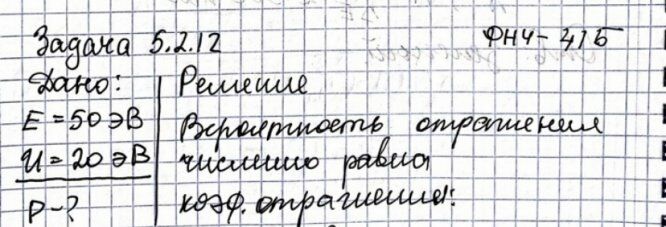 Задача 5.2.12 ФНЧ-41Б
Дано: Решение
E = 50 эВ Вероятность отражения
U = 20 эВ численно равна
P-? коэф. отражения: